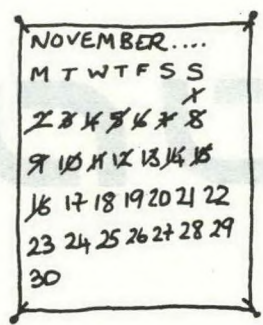 NOVEMBER....
M T W T F S S
1
2 3 4 5 6 7 8
9 10 11 12 13 14 15
16 17 18 19 20 21 22
23 24 25 26 27 28 29
30